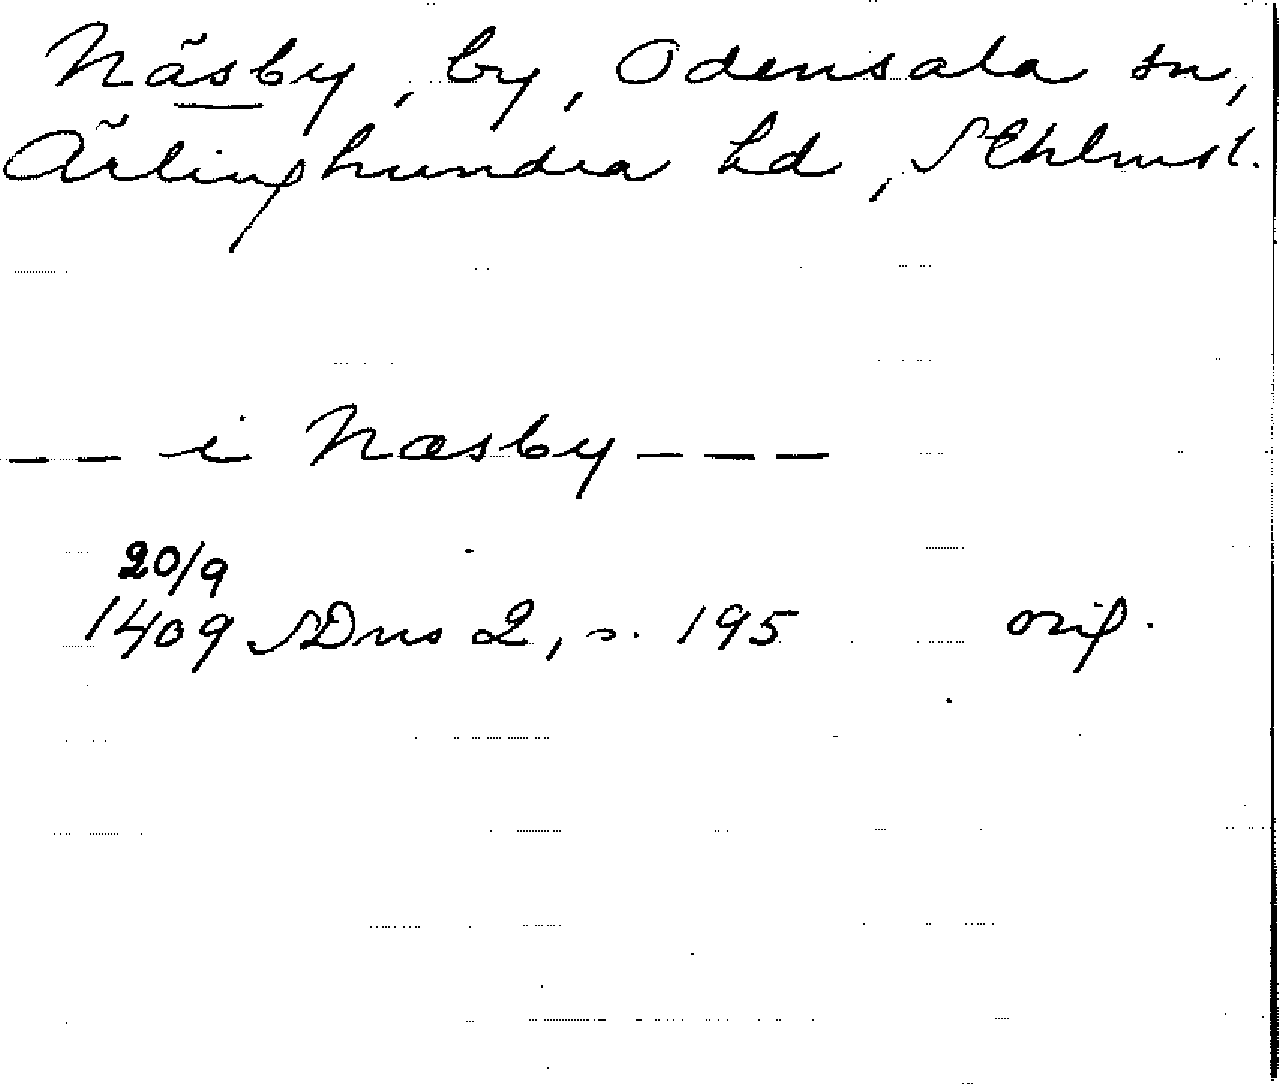 Näsby, by, Odensala sn,
Ärlinghundra hd, Sthlms l.
-- i Næsby ---
20/9
1409 SDns 2, s. 195 orig.